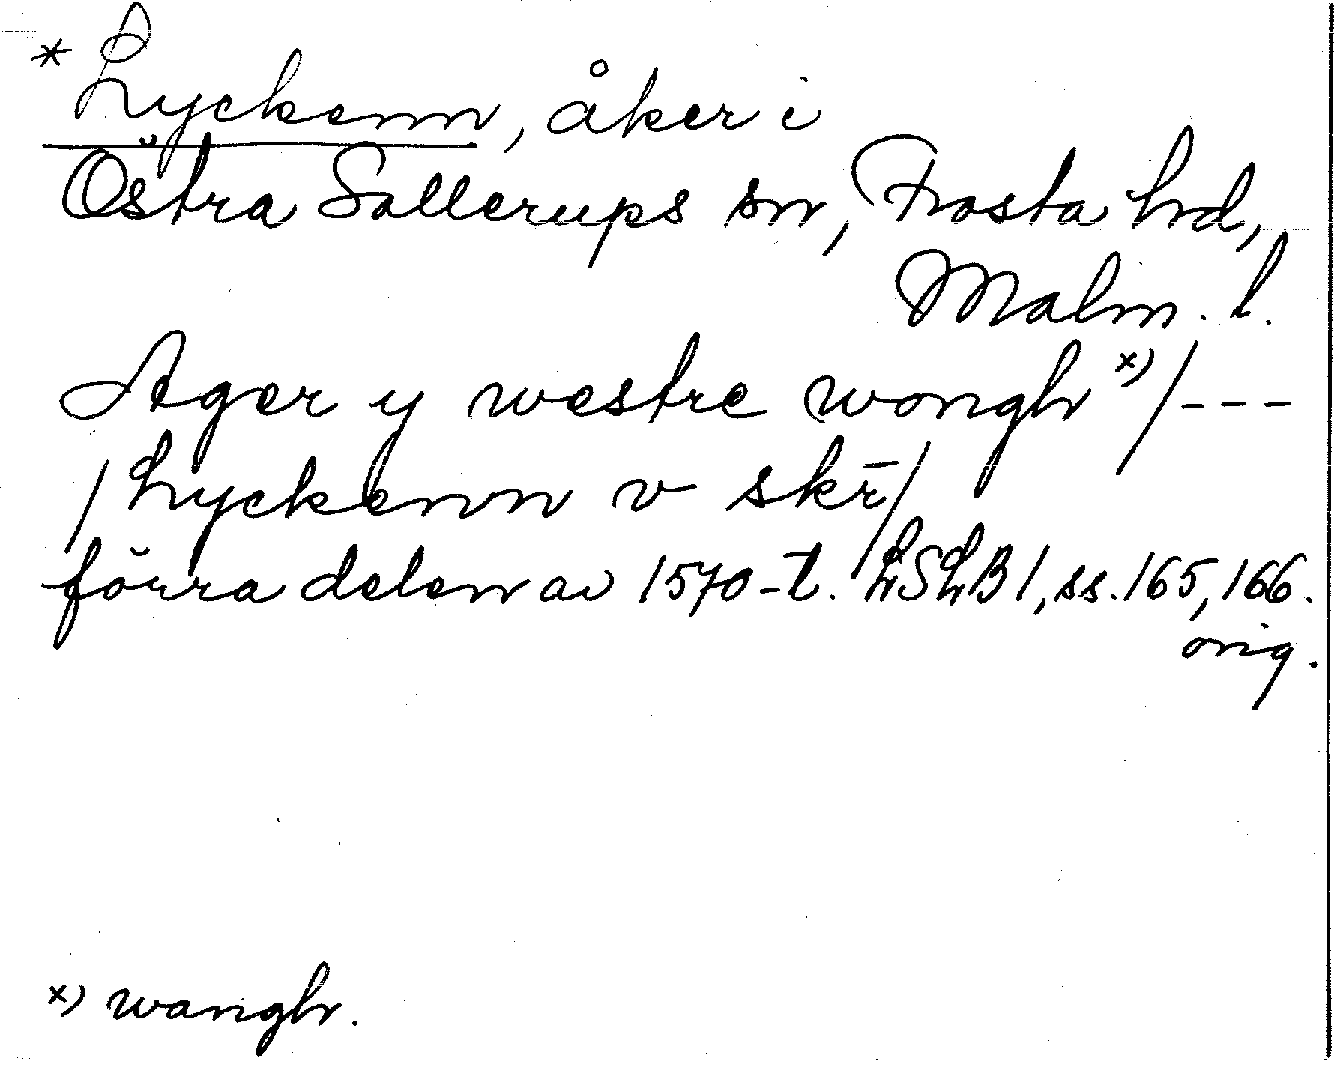 * Lyckenn, åker i
Östra Sallerups sn, Frosta hrd,
Malm. l.
Ager y westre wongh x) / - - -
/ Lyckenn v skr̄ /
förra delen av 1570-t. LSLB 1, ss. 165, 166.
orig.
x) wangh.